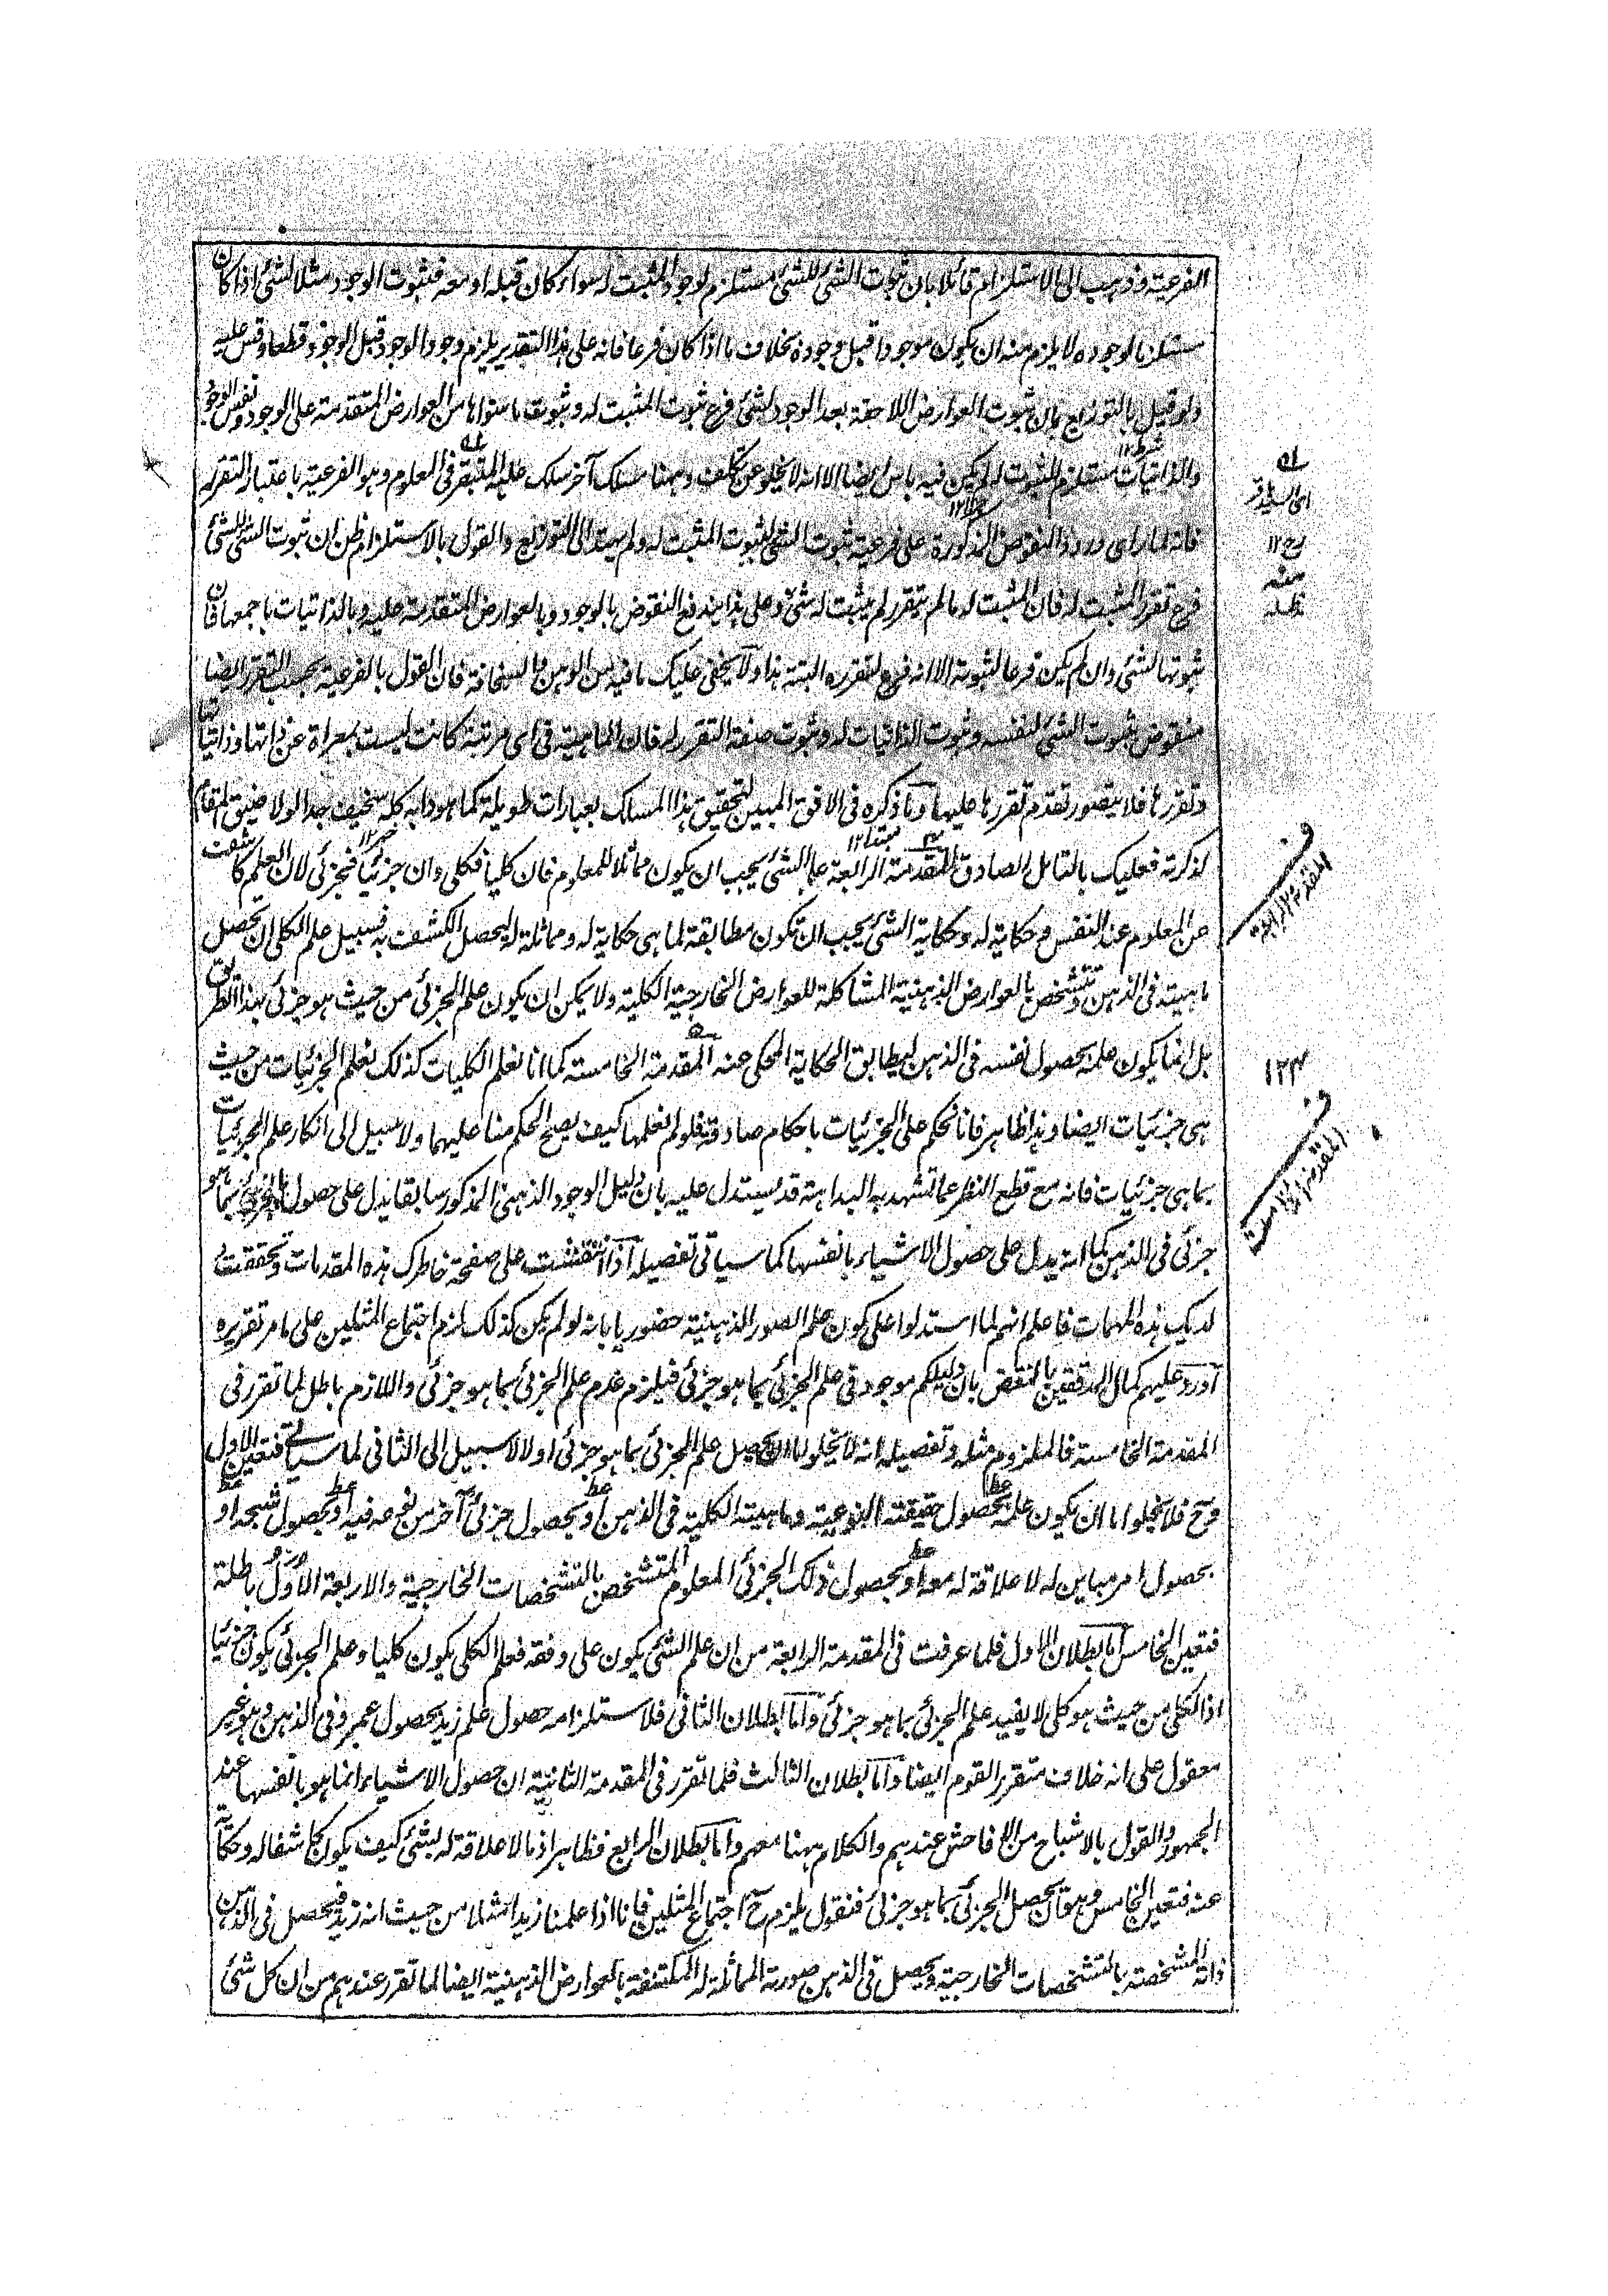 الفرعية وذهب الى الاستلزام قائلا بان ثبوت الشئ للشئ مستلزم لوجود المثبت له سواء كان قبله او معه فثبوت الوجود مثلا لشئ اذا كان
مستلزما لوجوده لا يلزم منه ان يكون موجودا قبل وجوده بخلاف ما اذا كان فرعا فانه على هذا التقدير يلزم وجود الوجود قبل الوجود قطعا وقس عليه
ولو قيل بالتوزيع بان ثبوت العوارض اللاحقة بعد الوجود لشئ فرع ثبوت المثبت له وثبوت ما سواها من العوارض المتقدمة على الوجود ونفس الوجود
والذاتيات مستلزم لثبوت له لم يكن فيه باس ايضا الا انه لا يخلو عن تكلف وههنا مسلك آخر سلك عليه المتبقر في العلوم وهو الفرعية باعتبار التقرر
فانه لما راى ورود النقوض المذكورة على فرعية ثبوت الشئ لثبوت المثبت له ولم يهتد الى التوزيع والقول بالاستلزام ظن ان ثبوت الشئ للشئ
فرع تقرر المثبت له فان المثبت له ما لم يتقرر لم يثبت له شئ وعلى هذا يندفع النقوض بالوجود وبالعوارض المتقدمة عليه وبالذاتيات باجمعها فان
ثبوتها لشئ وان لم يكن فرعا لثبوته الا انه فرع لتقرره البتة هذا ولا يخفى عليك ما فيه من الوهن والسخافة فان القول بالفرعية بحسب التقرر ايضا
منقوض بثبوت الشئ لنفسه وثبوت الذاتيات له وثبوت صفة التقرر له فان الماهية في اى مرتبة كانت ليست بمعراة عن ذاتها وذاتياتها
وتقررها فلا يتصور تقدم تقررها عليها وما ذكره في الافق المبين لتحقيق هذا المسلك بعبارات طويلة كما هو دابه كله سخيف جدا لولا ضيق المقام
لذكرته فعليك بالتامل الصادق المقدمة الرابعة علم الشئ يجب ان يكون مماثلا للمعلوم فان كليا فكلى وان جزئيا فجزئى لان العلم كاشف
عن المعلوم عند النفس وحكاية له وحكاية الشئ يجب ان تكون مطابقة لما هى حكاية له ومماثلة له ليحصل الكشف به فسبيل علم الكلى ان تحصل
ماهيته في الذهن وتتشخص بالعوارض الذهنية المشاكلة للعوارض الخارجية الكلية ولا يمكن ان يكون علم الجزئى من حيث هو جزئى بهذا الطريق
بل انما يكون علمه بحصول نفسه في الذهن ليطابق الحكاية المحكى عنه المقدمة الخامسة كما انا نعلم الكليات كذلك نعلم الجزئيات من حيث
هى جزئيات ايضا وهذا ظاهر فانا نحكم على الجزئيات باحكام صادقة فلو لم نعلمها كيف يصح الحكم منا عليها ولا سبيل الى انكار علم الجزئيات
بما هى جزئيات فانه مع قطع النظر عما تشهد به البداهة قد يستدل عليه بان دليل الوجود الذهنى المذكور سابقا يدل على حصول الجزئى بما هو
جزئى في الذهن كما انه يدل على حصول الاشياء بانفسها كما سياتى تفصيله اذا انتقشت على صفحة خاطرك هذه المقدمات وتحققت
لديك هذه المهمات فاعلم انهم لما استدلوا على كون علم الصور الذهنية حضوريا بانه لو لم يكن كذلك لزم اجتماع المثلين على ما مر تقريره
اورد عليهم كمال المدققين بالنقض بان دليلكم موجود في علم الجزئى بما هو جزئى فيلزم عدم علم الجزئى بما هو جزئى واللازم باطل لما تقرر في
المقدمة الخامسة فالملزوم مثله وتفصيله انه لا يخلو اما ان يحصل علم الجزئى بما هو جزئى او لا لا سبيل الى الثانى لما سياتى فتعين الاول
وح فلا يخلو اما ان يكون علمه بحصول حقيقته النوعية وماهيته الكلية في الذهن او بحصول جزئى آخر من نوعه فيه او بحصول شبحه او
بحصول امر مباين له لا علاقة له معه او بحصول ذلك الجزئى المعلوم المتشخص بالتشخصات الخارجية والاربعة الاول باطلة
فتعين الخامس اما بطلان الاول فلما عرفت في المقدمة الرابعة من ان علم الشئ يكون على وفقه فعلم الكلى يكون كليا وعلم الجزئى يكون جزئيا
اذ الكلى من حيث هو كلى لا يفيد علم الجزئى بما هو جزئى واما بطلان الثانى فلاستلزامه حصول علم زيد بحصول عمرو في الذهن وهو غير
معقول على انه خلاف متقرر القوم ايضا واما بطلان الثالث فلما تقرر في المقدمة الثانية ان حصول الاشياء انما هو بانفسها عند
الجمهور والقول بالاشباح من الا فاحش عندهم والكلام ههنا معهم واما بطلان الرابع فظاهر اذ ما لا علاقة له بشئ كيف يكون كاشفا له وحكاية
عنه فتعين الخامس وهو ان يحصل الجزئى بما هو جزئى فنقول يلزم ح اجتماع المثلين فانا اذا علمنا زيدا مثلا من حيث انه زيد فيحصل في الذهن
ذاته المشخصة بالتشخصات الخارجية ويحصل في الذهن صورته المماثلة له المكتنفة بالعوارض الذهنية ايضا لما تقرر عندهم من ان كل شئ
اى السيد باقر
رح ١٢
منه
مدظله
المقدمة الرابعة
١٢٣
المقدمة الخامسة